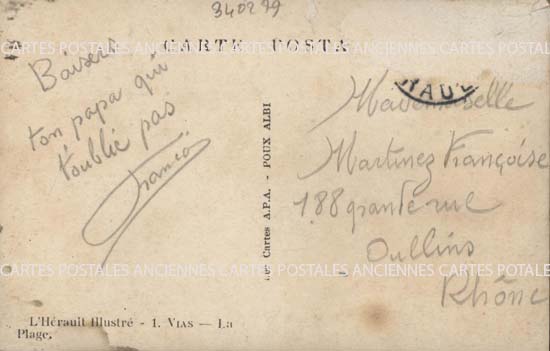 340299
CARTE POSTA
CARTES POSTALES ANCIENNES CARTES POSTALES ANCIENNES CARTES POSTALES
Baisers
ton papa qui
t'oublie pas
Les Cartes A.P.A. - POUX ALBI
Mademoiselle
Martinez Françoise
188 grande rue
Oullins
Rhône
CARTES POSTALES ANCIENNES CARTES POSTALES ANCIENNES CARTES POSTALES
L'Hérault Illustré - 1. VIAS — La
Plage.